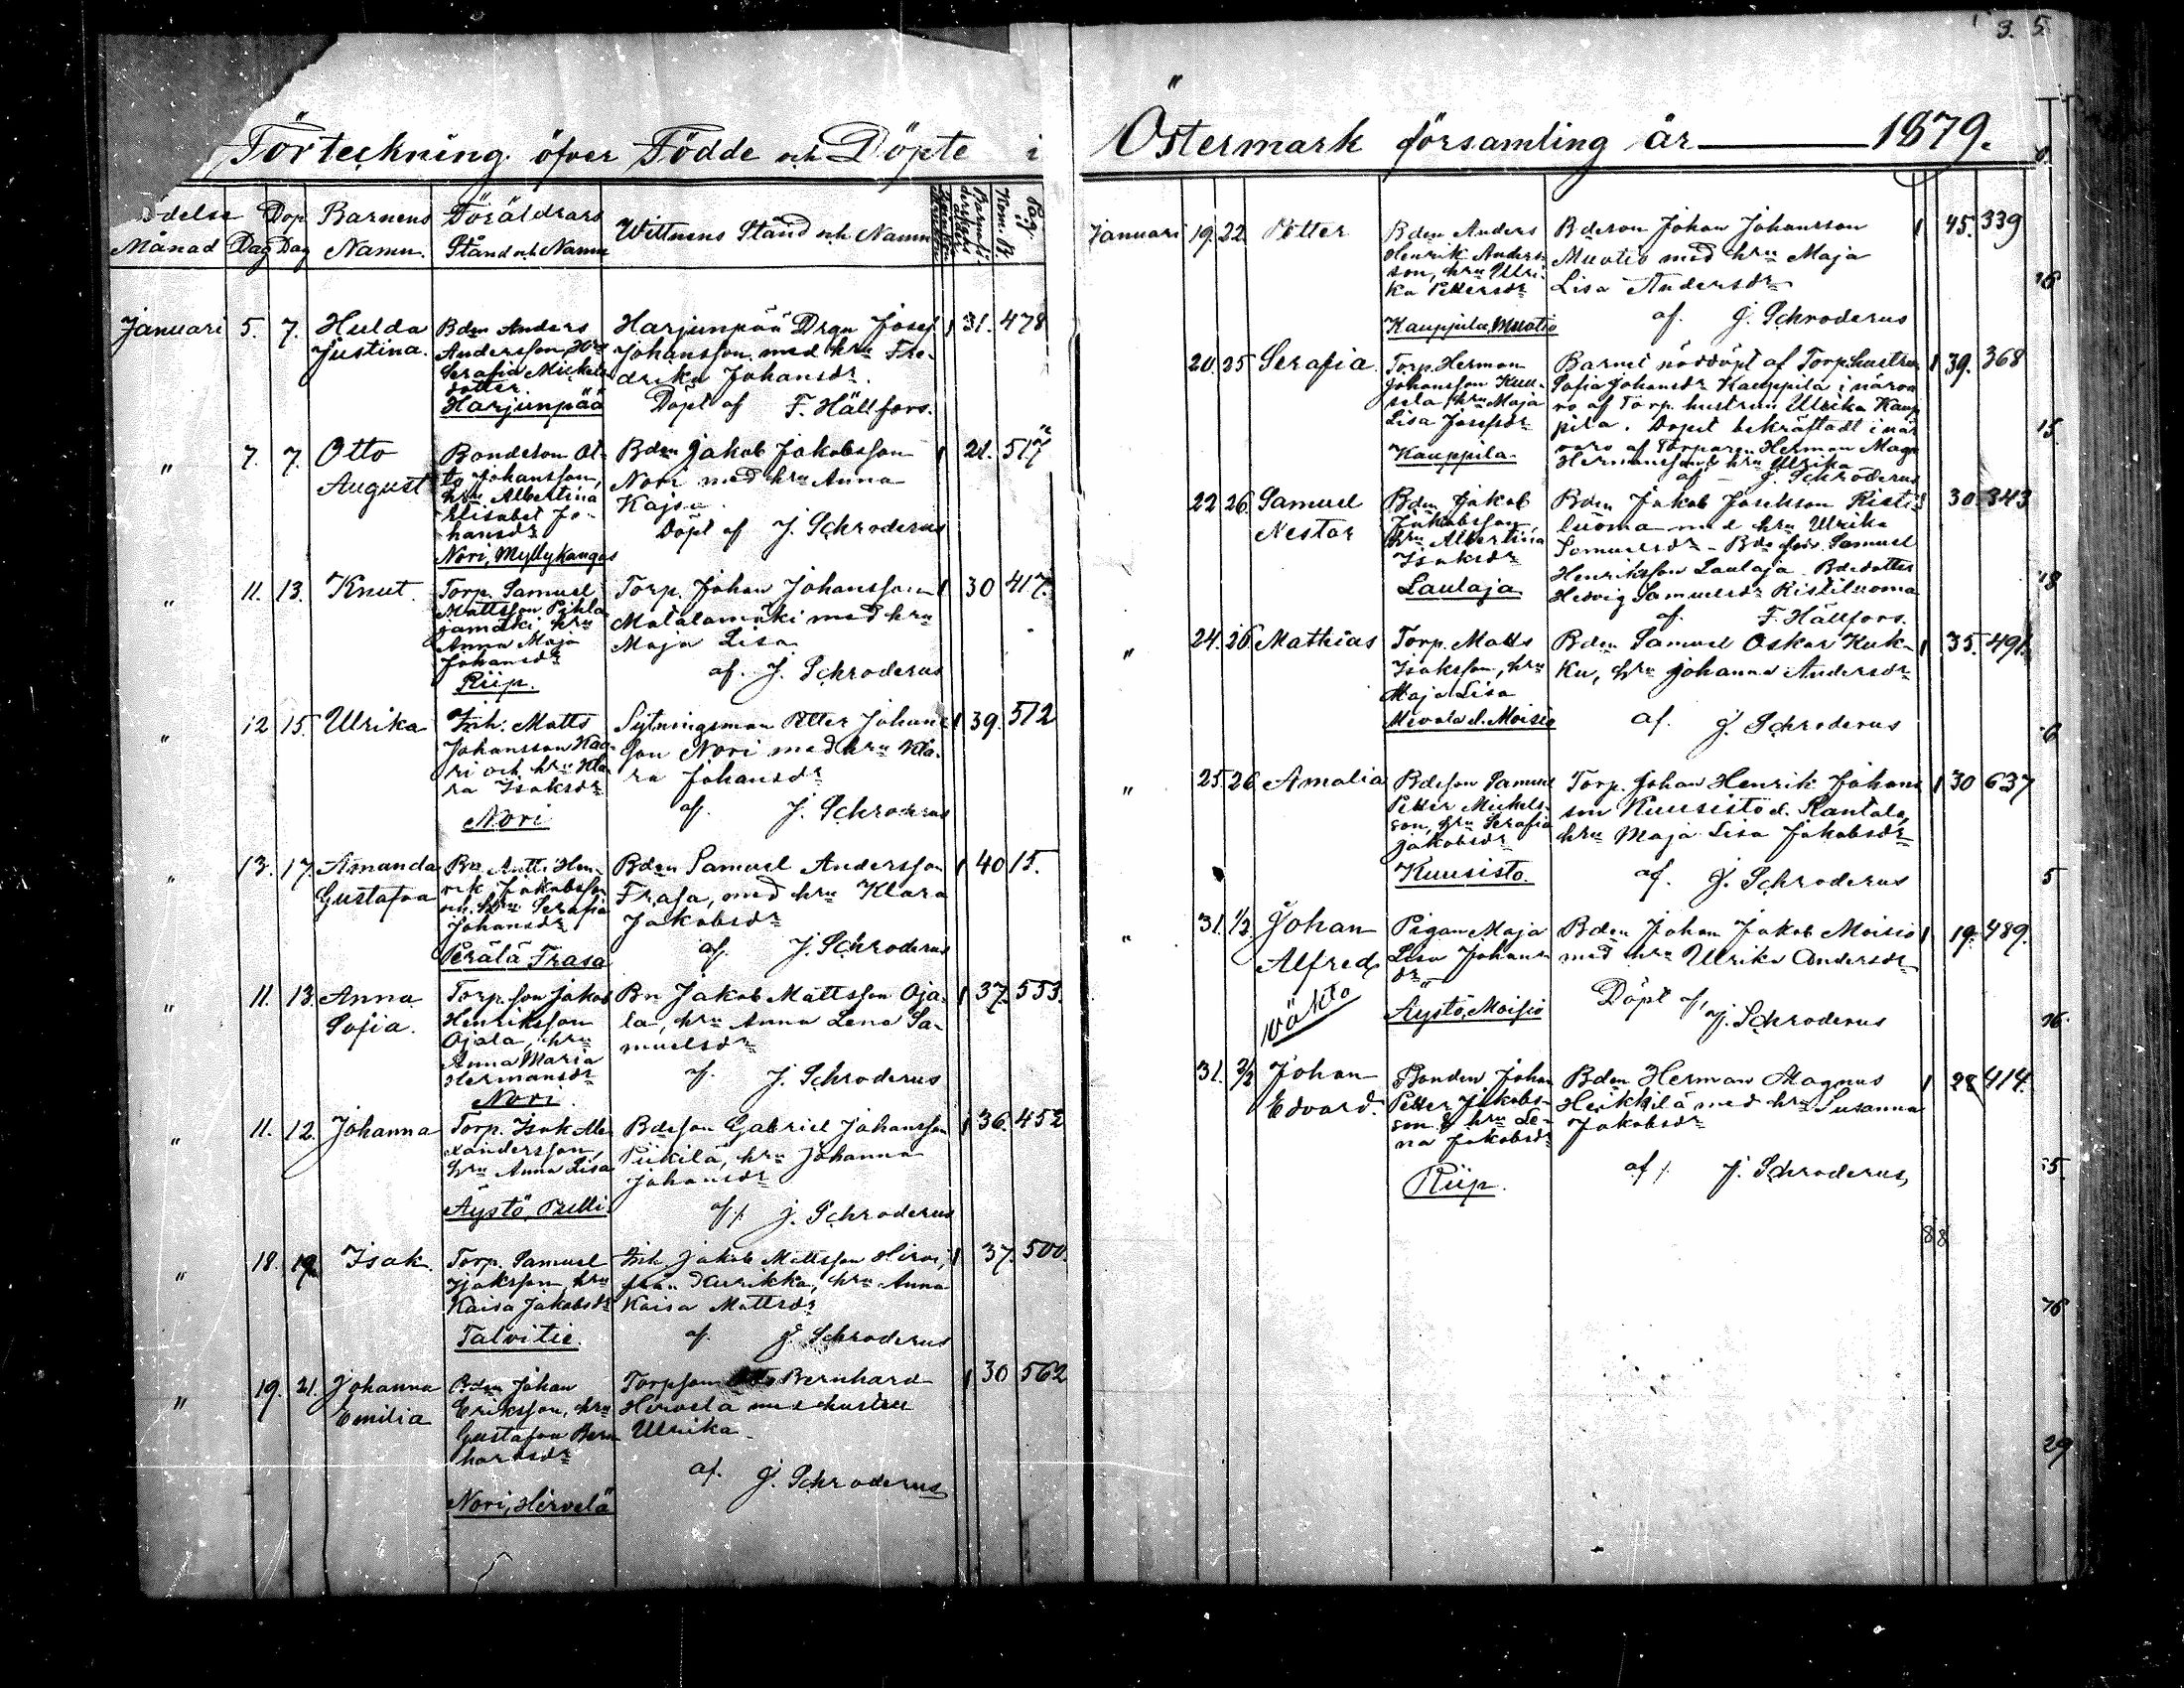 3. 5.
Förteckning öfver Födde och Döpte i
Östermark församling år 1879.
Månad Dag Dag
Dop
Barnens Namn.
Föräldrars Stånd och Namn
Wittnens Stånd och Namn
Kom. B.
Pag.
Januari 5. 7. Hulda Justina.
Bdn Anders
Andersson, hru
Serafia Mickels
dotter
Harjunpää
Harjunpää Drgn Josef
Johansson med hru Fre-
drika Johansdr.
Döpt af F. Hällfors.
1 31. 478
" 7. 7. Otto August
Bondeson Ot-
to Johansson,
hru Albertina
Elisabet Jo-
hansdr
Nori, Myllykangas
Bdn Jakob Jakobsson
Nori med hru Anna
Kajsa
Döpt af J. Schroderus
1 21. 517
" 11. 13. Knut
Torp. Samuel
Mattsson Pihla
jamäki hru
Anna Maja
Johansdr
Riip.
Torp. Johan Johansson
Matalamäki med hru
Maja Lisa
af. J. Schroderus
1 30 417.
" 12 15. Ulrika
Inh. Matts
Johansson Kaa-
ri och hru Kla-
ra Isaksdr
Nori
Sytningsman Petter Johans
son Nori med hru Kla-
ra Johansdr
af. J. Schroderus
1 39. 512
" 13. 17. Amanda Gustafva
Bn. Antti Hen-
rik Jakobsson
och hru Serafia
Johansdr
Perälä Frasa
Bdn Samuel Andersson
Frasa, med hru Klara
Jakobsdr
af. J. Schroderus
1 40 15.
" 11. 13. Anna Sofia.
Torp. son Jakob
Henriksson
Ojala, hru
Anna Maria
Hermansdr
Nori.
Bn Jakob Mattsson Oja-
la, hru Anna Lena Sa-
muelsdr
af. J. Schroderus
1 37. 553.
" 11. 12. Johanna
Torp. Isak Alex-
andersson,
hru Anna Lisa
Äystö,
Bdeson Gabriel Johansson
Piikilä, hru Johanna
Johansdr
af. J. Schroderus
1 36. 452
" 18. 19. Isak.
Torp. Samuel
Isaksson, hru
Kaisa Jakobsdr
Talvitie.
Inh. Jakob Mattsson Hirvi,
från Kurikka, hru Anna
Kaisa Mattsdr
af. J. Schroderus
1 37. 500.
" 19. 21. Johanna Emilia
Bdn Johan
Eriksson, hru
Gustafva Bern
hardsdr
Nori, Hirvelä
Torpson Bernhard
Hirvelä med hustru
Ulrika
af. J. Schroderus
1 30 562
Januari 19. 22. Petter
Bdn Anders
Henrik Anders-
son, hru Ulri-
ka Pettersdr
Kauppila, Muotio
Bdeson Johan Johansson
Muotio med hru Maja
Lisa Andersdr
af. J. Schroderus
1 45. 339
20. 25 Serafia.
Torp. Herman
Johansson Kuu-
sela, hru Maja
Lisa Josefsdr
Kauppila
Barnet nöddöpt af Torp.hustru
Sofia Johansdr Kauppila i närva
ro af Torp. hustrun Ulrika Kaup
pila. Dopet bekräftadt i när
varo af Torparen Herman Magn
Hermansson & hru Ulrika
af J. Schroderus
1 39. 368
22 26. Samuel Nestor
Bdn Jakob
Jakobsson,
hru Albertina
Isaksdr
Laulaja
Bdn Jakob Josefsson Risti-
luoma med hru Ulrika
Samuelsdr - Samuel
Henriksson Laulaja Bdedotter
Hedvig Samuelsdr Ristiluoma
af. F. Hällfors.
30. 343
" 24. 26. Mathias
Torp. Matts
Isaksson, hru
Maja Lisa
Moisio
Bdn Samuel Oskar Kuk-
ku, hru Johanna Andersdr
af. J. Schroderus
1 35. 491.
" 25. 26. Amalia
Bdeson Samuel
Petter Mickels-
son, hru Serafia
Jakobsdr
Kuusisto.
Torp. Johan Henrik Johans
son Kuusisto d. Rantala,
hru Maja Lisa Jakobsdr
af. J. Schroderus
1 30 637
" 31. 1/2 Johan Alfred
oäkta
Pigan Maja
Lisa Johans
dr
Äystö, Moisio
Bdn Johan Jakob Moisio
med hru Ulrika Andersdr
Döpt af, J. Schroderus
1 19. 489.
31. 2/2 Johan Edvard.
Bonden Johan
Petter Jakobs-
son & hru Le-
na Jakobsdr
Riip.
Bdn Herman Magnus
Heikkilä med hru Susanna
Jakobsdr
af. J. Schroderus,
1 28 414.
8 8